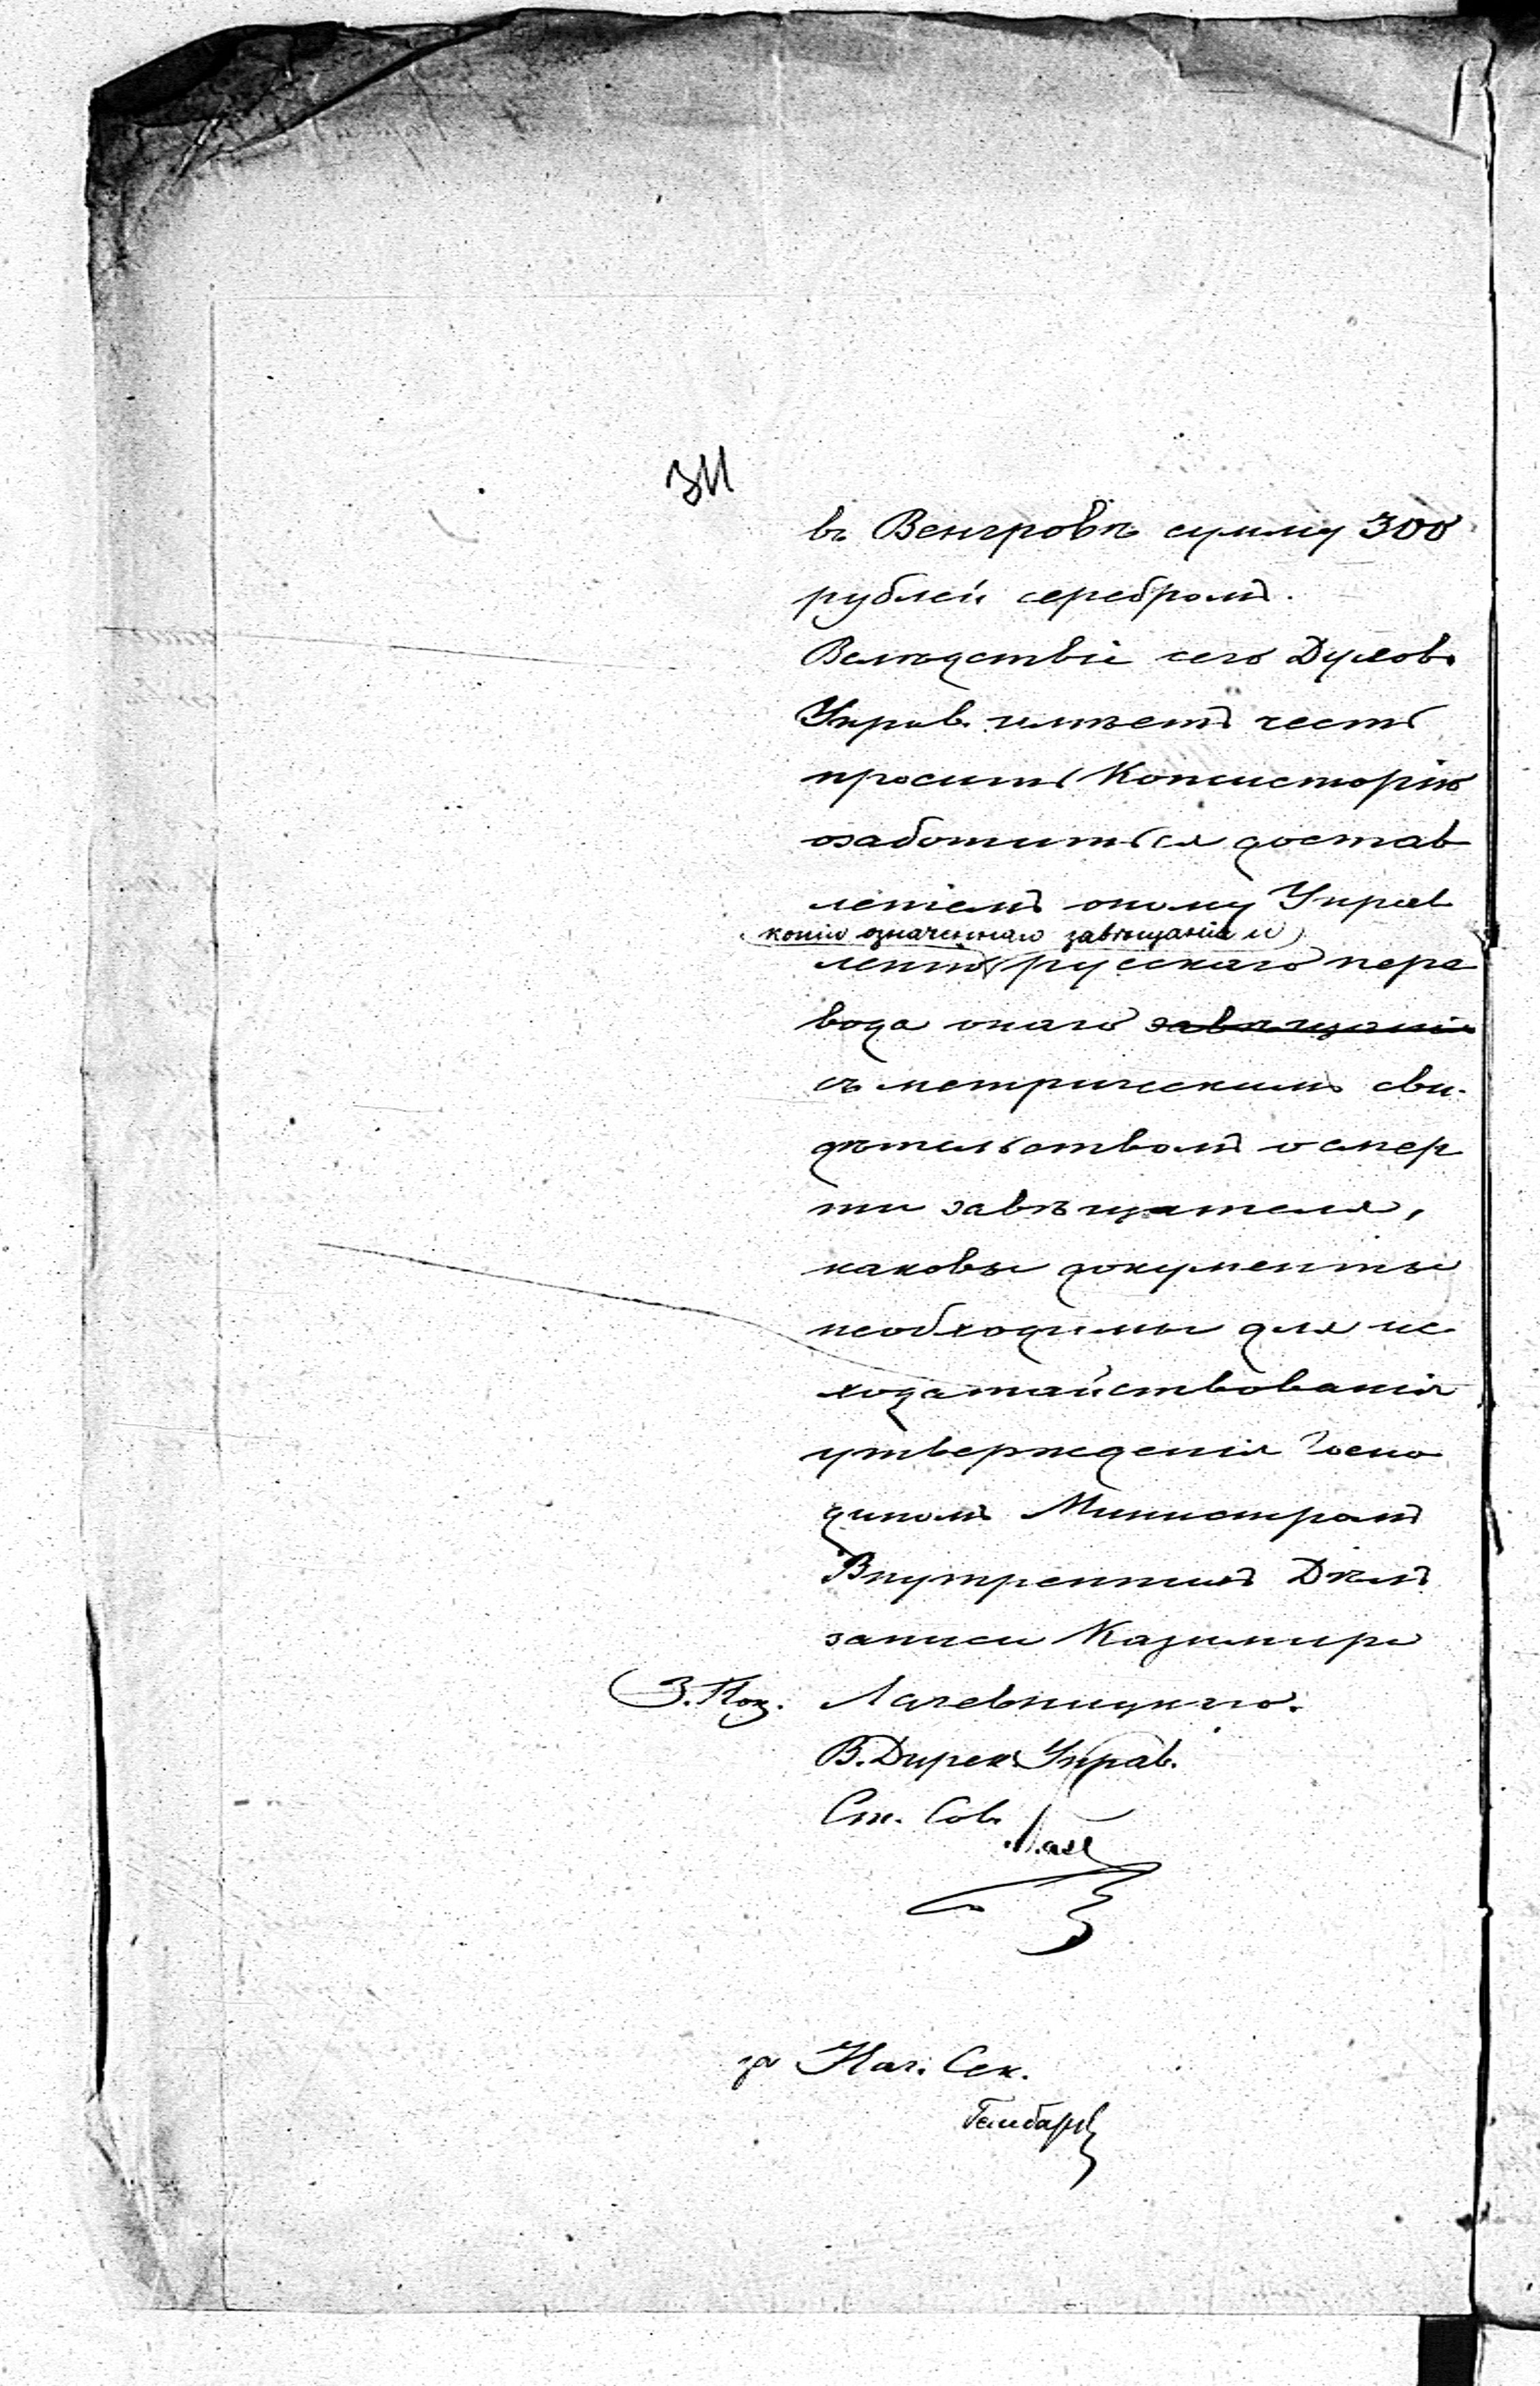 въ Венгровѣ сумму 300
рублей серебромъ.
Вслѣдствіе сего Духов.
Управ. имѣетъ честь
просить Консисторію
озаботиться достав
леніемъ оному Управ
копіи означеннаго завѣщанія и
ленію русскаго пере
вода онаго завѣщанія
съ метрическимъ сви-
дѣтельствомъ о смер
ти завѣщателя,
каковы документы
необходимы для ис
ходатайствованія
утвержденія Госпо
диномъ Министромъ
Внутреннихъ Дѣлъ
записи Казимира
З. Поз.
В. Дирек. Управ.
Ст. Сов.
за Нач. Сек.